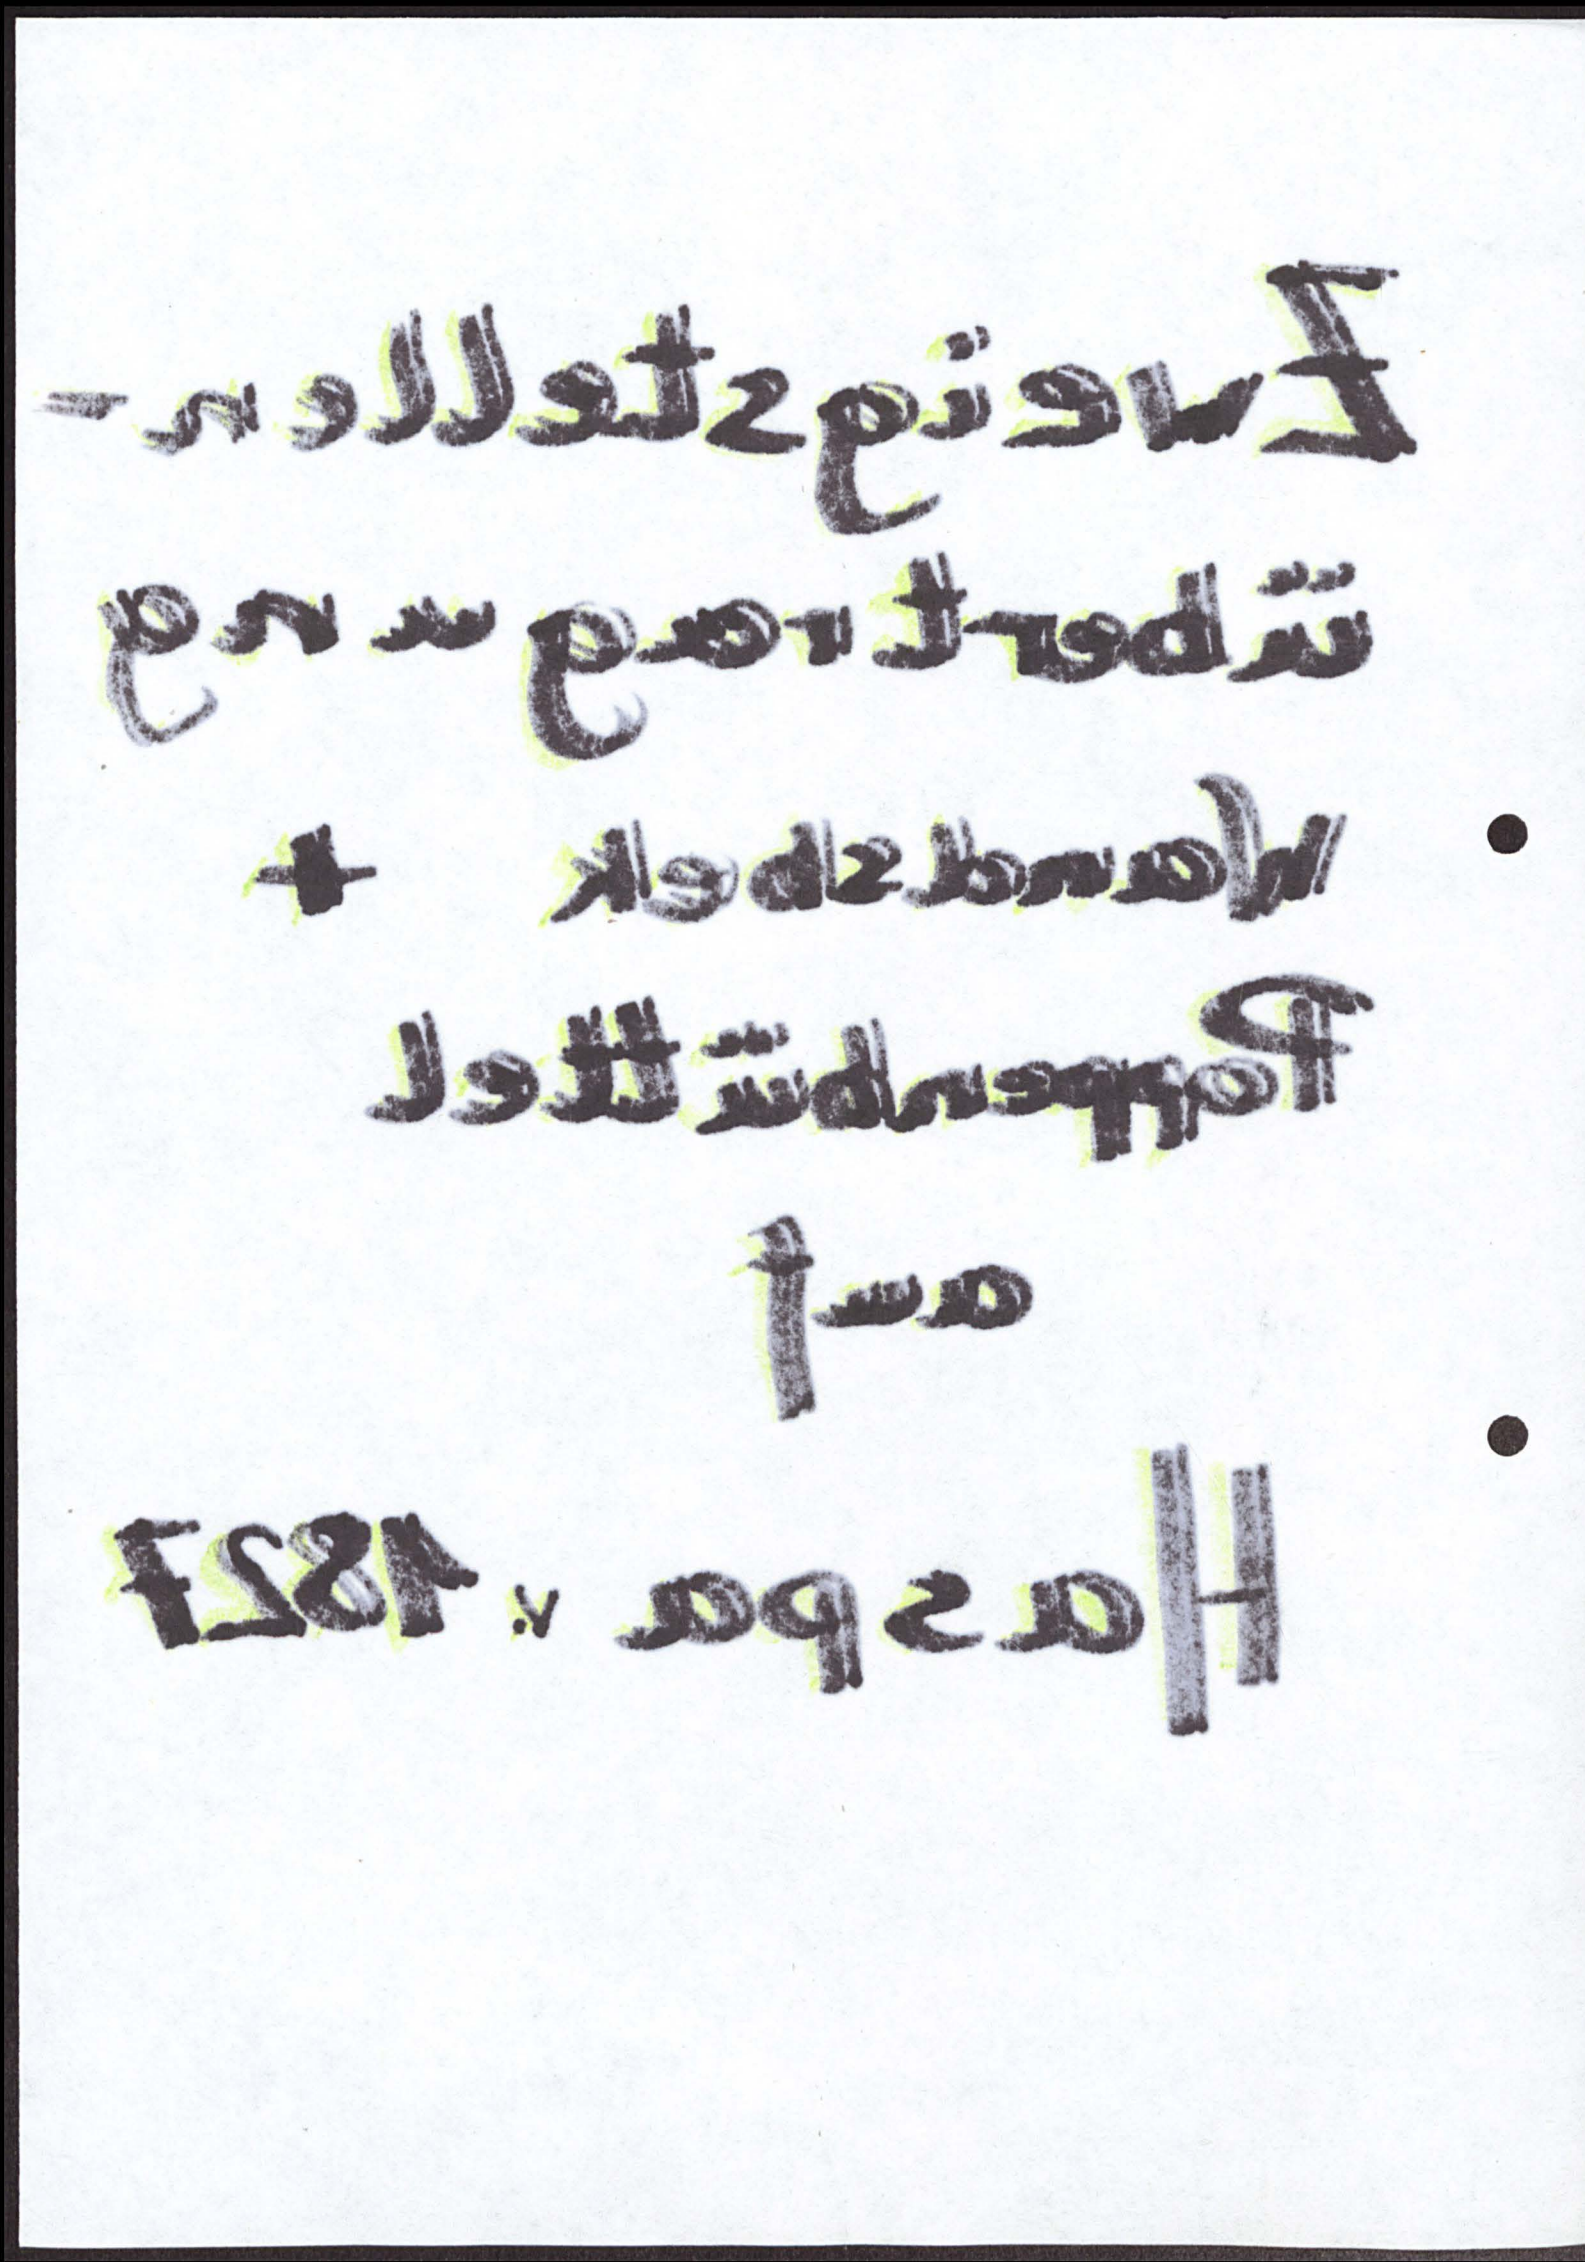 Zweigstellen-
übertragung
Wandsbek +
Poppenbüttel
auf
Haspa v. 1827